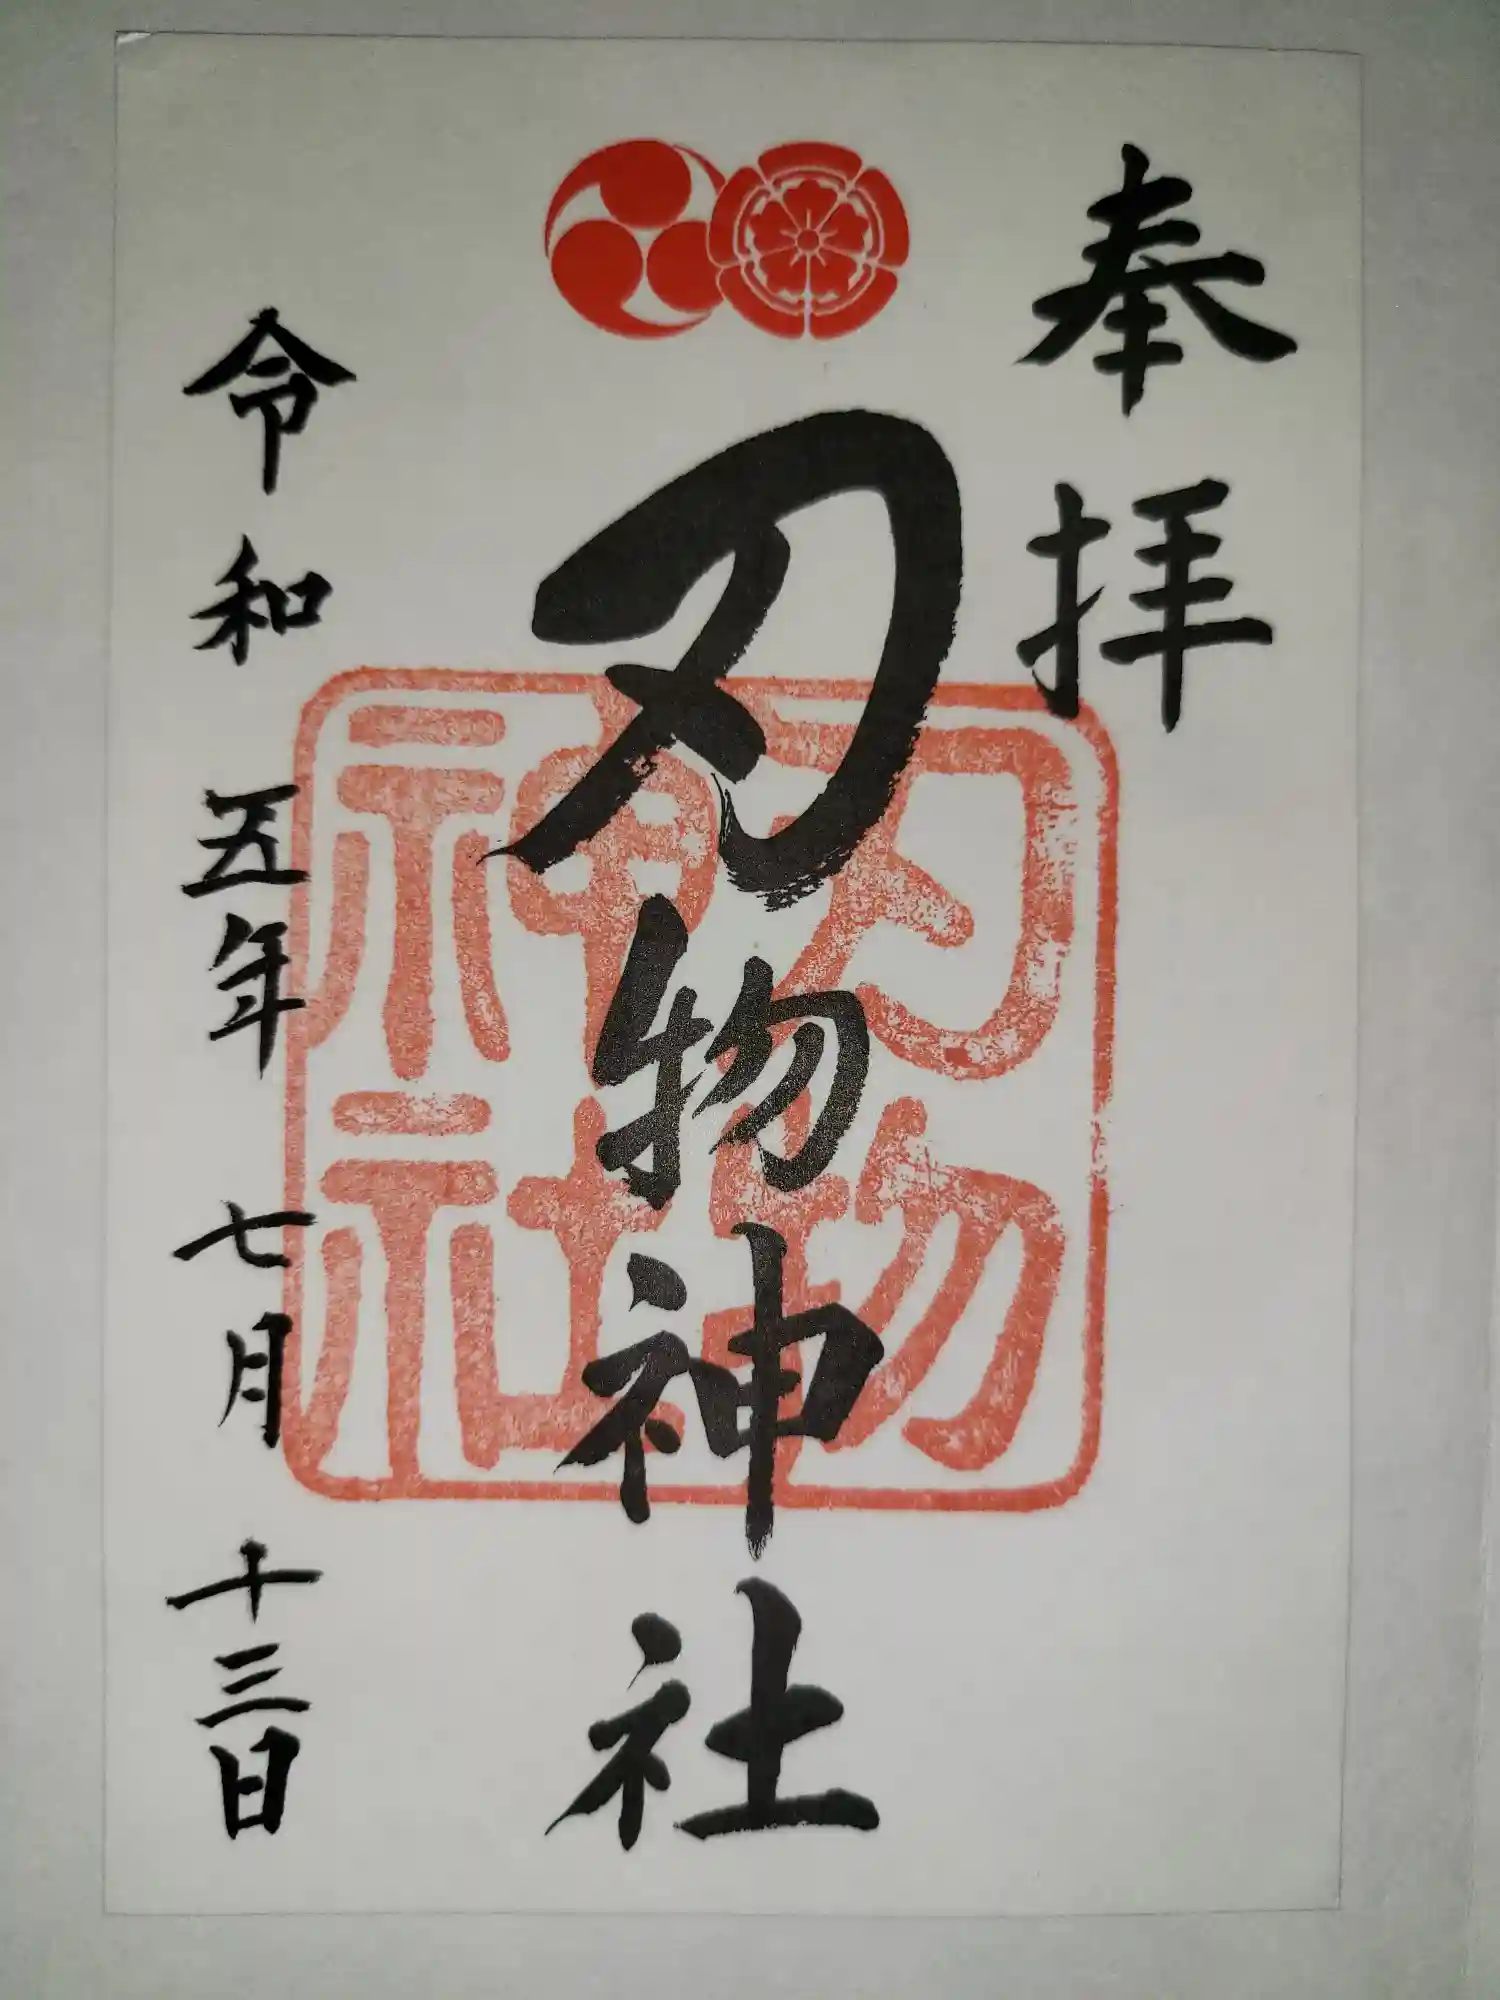 奉拝
刃物神社
刃物神社
令和五年七月十三日